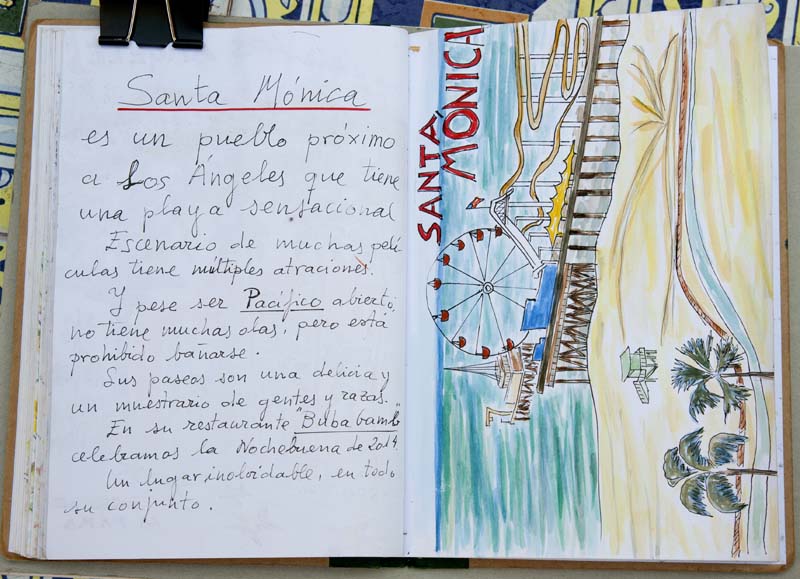 Santa Mónica
es un pueblo próximo
a Los Ángeles que tiene
una playa sensacional
Escenario de muchas pelí
culas tiene múltiples atraciones.
Y pese ser Pacífico abierto,
no tiene muchas olas, pero está
prohibido bañarse.
Sus paseos son una delicia y
un muestrario de gentes y razas.
En su restaurante "Buba bamb"
celebramos la Nochebuena de 2014
Un lugar inolvidable, en todo
su conjunto.
SANTA
MÓNICA